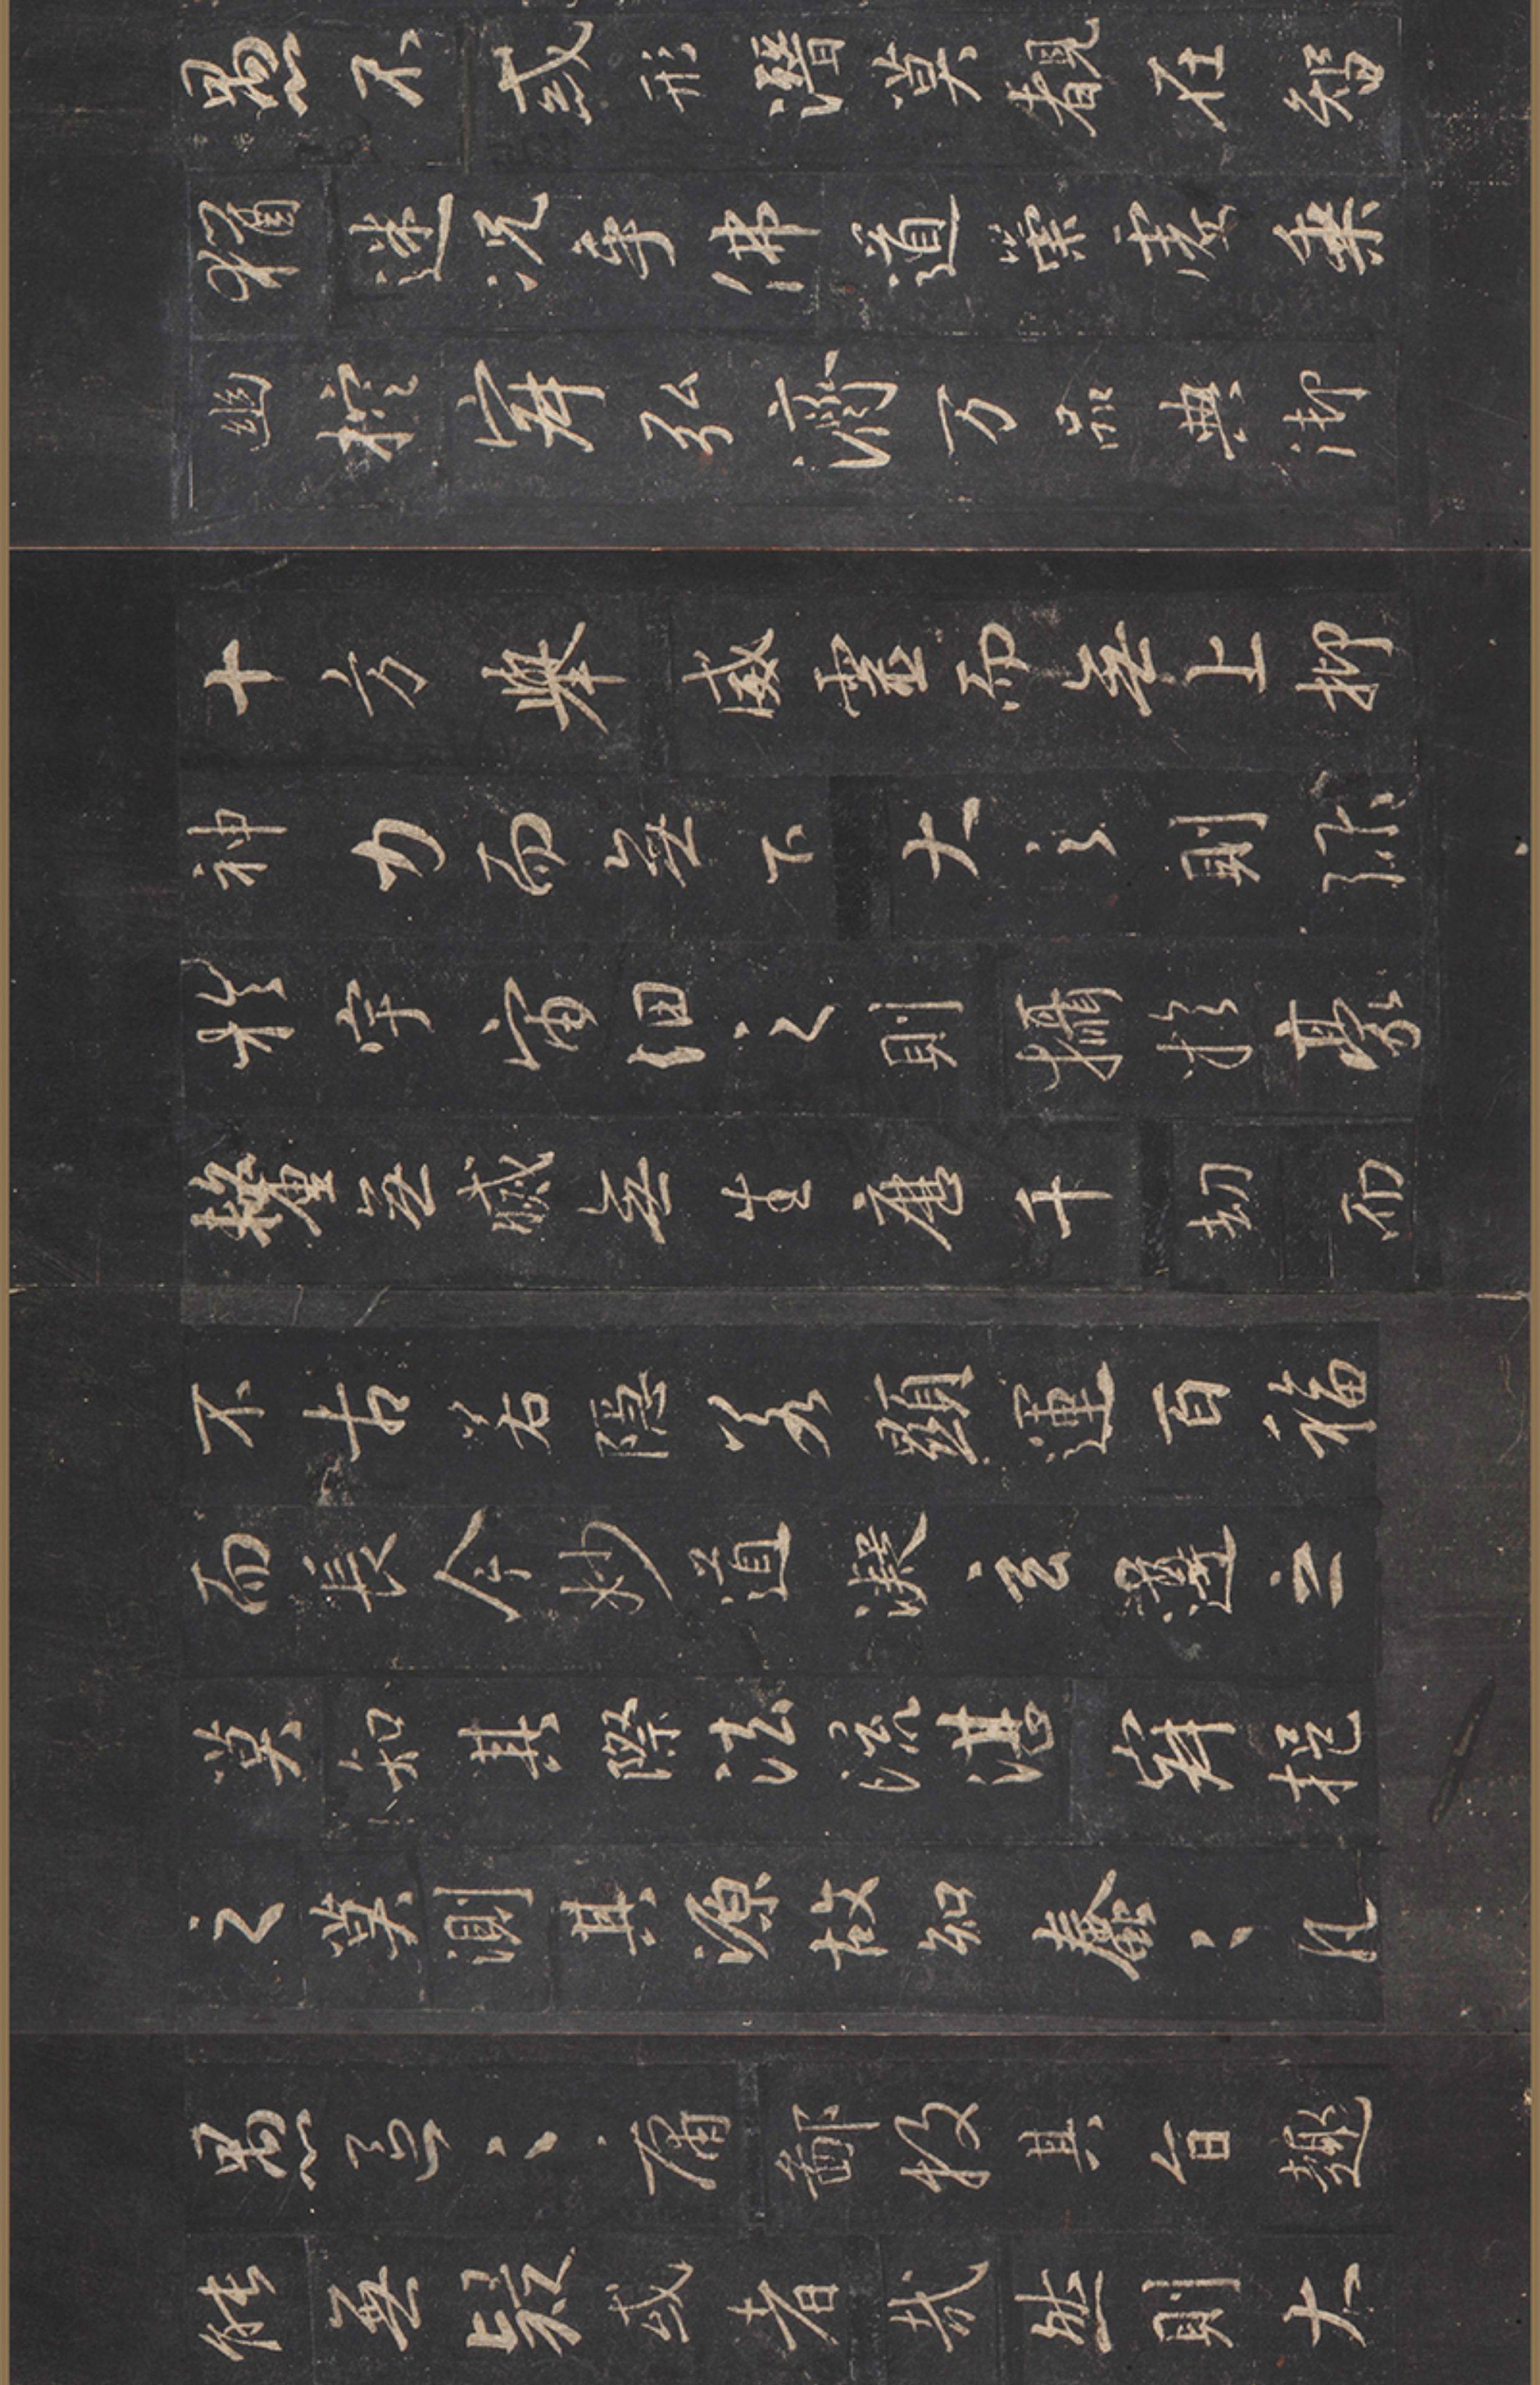 愚不惑形潛莫覩在智
猶迷況乎佛道崇虛乘
幽控寂弘濟万品典御
十方舉威靈而無上抑
神力而無下大之則彌
於宇宙細之則攝於豪
釐無滅無生歷千劫而
不古若隱若顯運百福
而長今妙道凝玄遵之
莫知其際法流湛寂挹
之莫測其源故知蠢〻凡
愚區〻庸鄙投其旨趣
能無疑惑者哉然則大